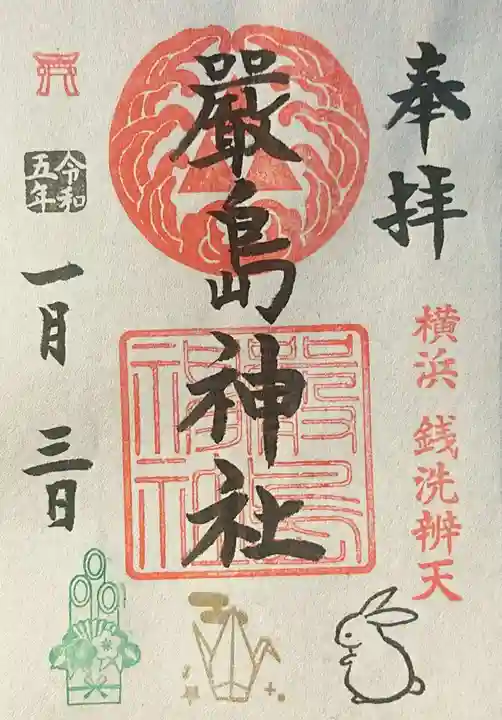 奉拝
横浜 銭洗辨天
嚴島神社
嚴島
神社
令和
五年
一月三日